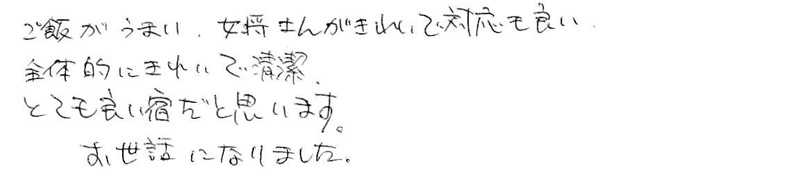 ご飯がうまい、女将さんがきれいで対応も良い、
全体的にきれいで清潔、
とても良い宿だと思います。
お世話になりました。